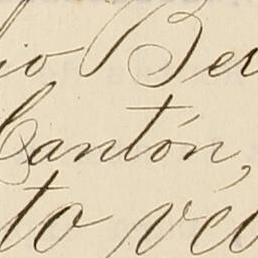 io Ber
Cantón,
to vec